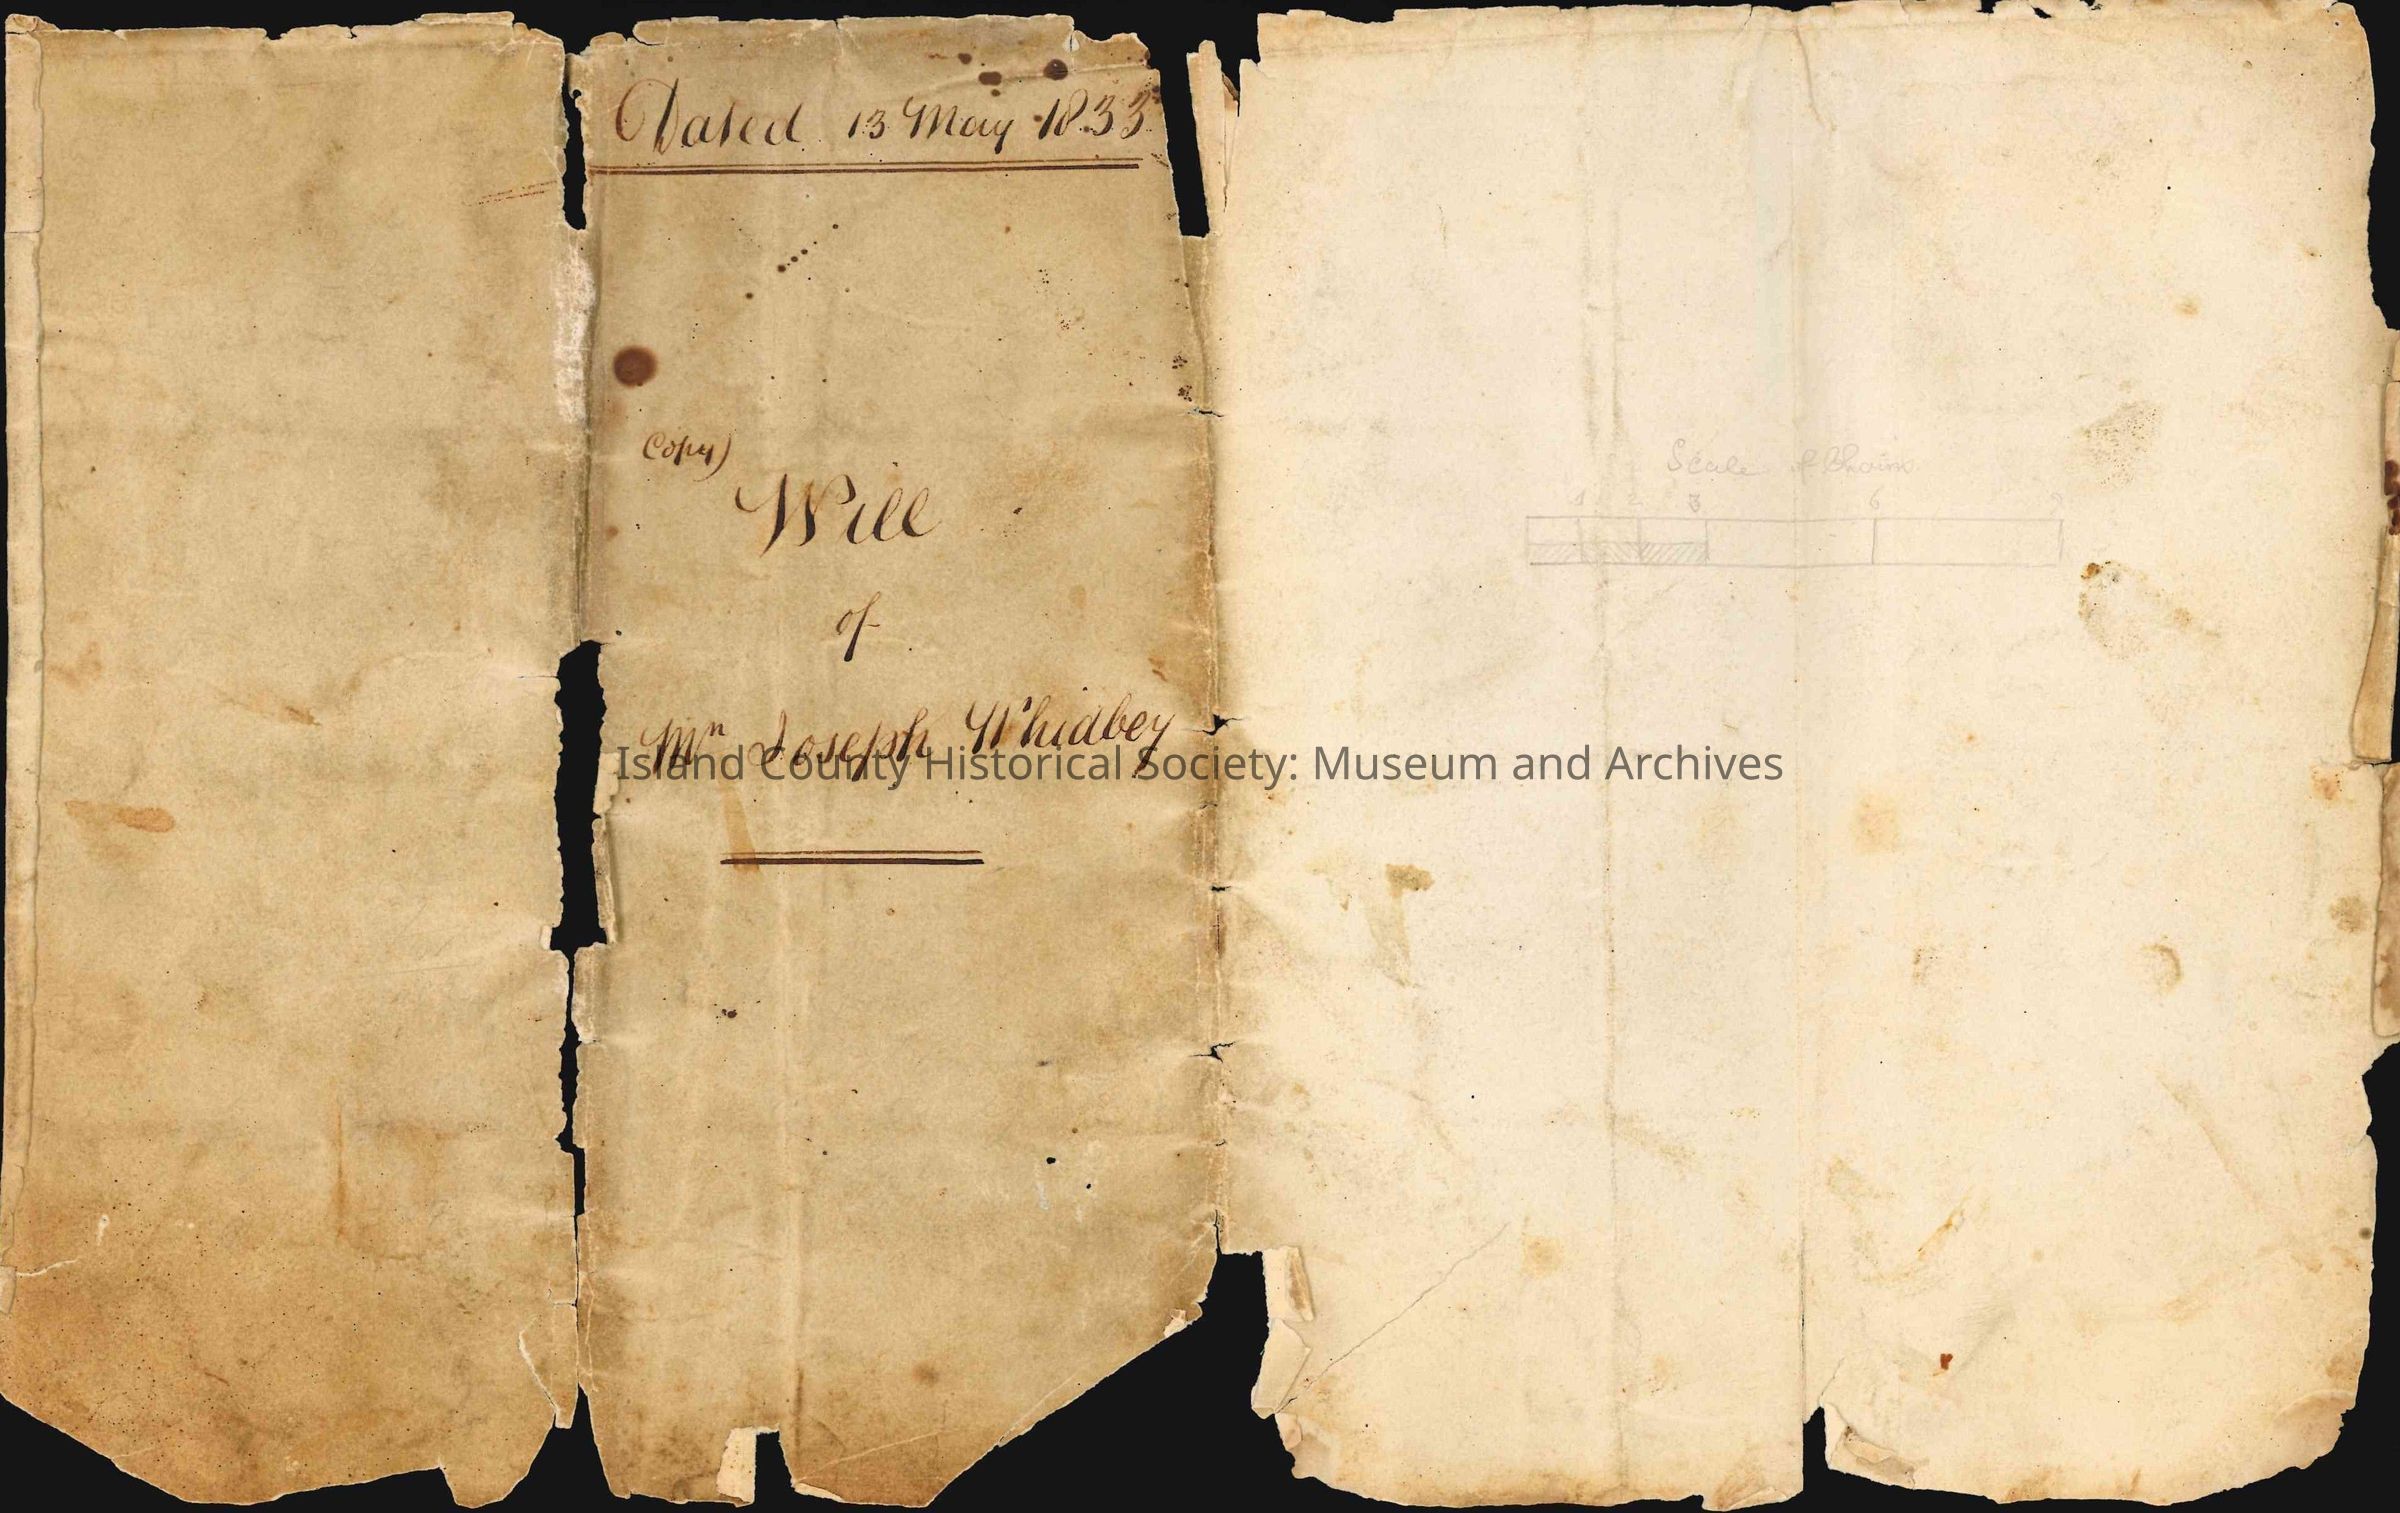 Dated 13 May 1833
Copy)
Will
of
Mr Joseph Whidbey
Island County Historical Society: Museum and Archives
Scale of Chains
1 2 3 6 9